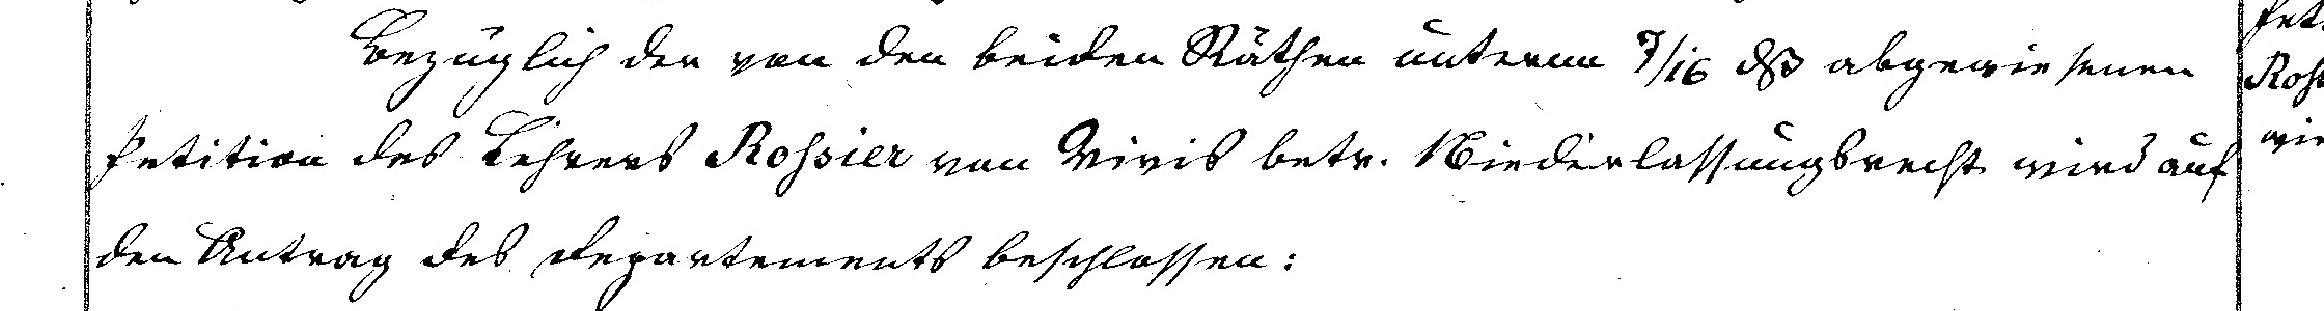 Bezüglich der von den beiden Räthen unterm 7/16 dß abgewiesenen
Petition des Lehrers Rossier von Vivis betr. Niederlassungsrecht wird auf
den Antrag des Departements beschlossen: